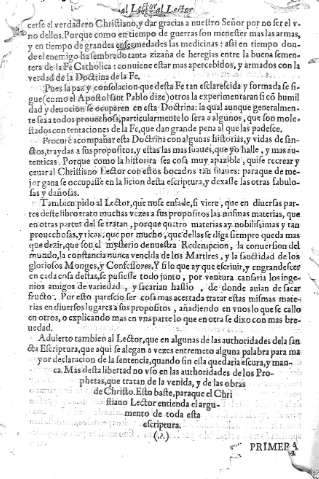 al Lector al Lector
cerse el verdadero Christiano, y dar gracias a nuestro Señor por no ser el v
no dellos. Porque como en tiempo de guerras son menester mas las armas,
y en tiempo de grandes enfermedades las medicinas: assi en tiempo don
de el enemigo ha sembrado tanta zizaña de heregias entre la buena semen-
tera de la Fè Catholica: conuiene estar mas apercebidos, y armados con la
verdad de la Doctrina de la Fe.
Pues la paz y consolacion que desta Fe tan esclarescida y formada se si-
gue (como el Apostol san Pablo dize) otros la experimentaran si cõ humil
dad y deuocion se occuparen en esta Doctrina: la qual aunque generalmen-
te sea a todos prouechosa, particularmente lo sera a algunos, que son mole-
stados con tentaciones de la Fe, que dan grande pena al que las padesce.
Procurè acompañar esta Doctrina con algunas historias, y vidas de san-
ctos, traydas a sus propositos, y estas las mas suaues, que yo halle, y mas au-
tenticas. Porque como la historia sea cosa muy apazible, quise recrear y
ceuar al Christiano Lector con estos bocados tan suaues: paraque de me-
jor gana se occupasse en la licion desta escriptura, y dexasse las otras fabulo-
sas y dañosas.
Tambien pido al Lector, que no se enfade, si viere, que en diuersas par-
tes deste libro trato muchas vezes a sus propositos las mismas materias, que
en otras partes del se tratan, porque quatro materias ay nobilissimas y tan
prouechosas, y ricas, que por mucho, que dellas se diga siempre queda mas
que dezir, que son el mysterio de nuestra Redempcion, la conuersion del
mundo, la constancia nunca vencida de los Martires, y la sanctidad de los
gloriosos Monges, y Confessores. Y si lo que ay que escriuir, y engrandescer
en cada cosa destas, se pusiesse todo junto, por ventura cansaria los inge-
nios amigos de variedad, y sacarian hastio, de donde auian de sacar
fructo. Por esto parescio ser cosa mas acertada tratar estas mismas mate-
rias en diuersos lugares a sus propositos, añadiendo en vnos lo que se callo
en otros, o explicando mas en vna parte lo que en otra se dixo con mas bre-
uedad.
Aduierto tambien al Lector, que en algunas de las authoridades de la san
cta Escriptura, que aqui se alegan a vezes entremeto alguna palabra para ma
yor declaracion de la sentencia, quando sin ella quedaria escura, y man-
ca. Mas desta libertad no vso en las authoridades de los Pro-
phetas, que tratan de la venida, y de las obras
de Christo. Esto baste, paraque el Chri
stiano Lector entienda el argu-
mento de toda esta
escriptura.
(.?.)
PRIMERA